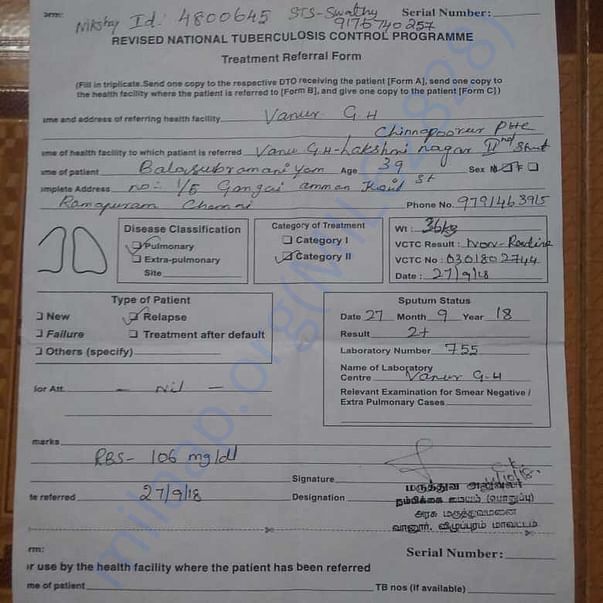 orm: Nikshay Id: 4800645 STS-Swathy Serial Number:
9176740257
REVISED NATIONAL TUBERCULOSIS CONTROL PROGRAMME
Treatment Referral Form
(Fill in triplicate.Send one copy to the respective DTO receiving the patient [Form A], send one copy to
the health facility where the patient is referred to [Form B], and give one copy to the patient [Form C])
ame and address of referring health facility Vanur G H
Chinnaporur PHC
ame of health facility to which patient is referred Vanu G.H-Lakshmi nagar IInd Street
ame of patient Balasubramaniyam Age 39 Sex M F
omplete Address no: 1/E Gangai amman Koil St
Ramapuram Chennai Phone No. 9791463915
Disease Classification
Pulmonary
Extra-pulmonary
Site
Category of Treatment
Category I
Category II
Wt : 36kg
VCTC Result : Non-Reactive
VCTC No : 0301802744
Date : 27/9/18
Type of Patient
New Relapse
Failure Treatment after default
Others (specify)
Sputum Status
Date 27 Month 9 Year 18
Result 2+
Laboratory Number 755
Name of Laboratory
Centre Vanur G.H
Relevant Examination for Smear Negative /
Extra Pulmonary Cases
ior Att. - Nil -
marks
RBS- 106 mg/dl
Signature
te referred 27/9/18 Designation
மருத்துவ அலுவலர்
நம்பிக்கை மையம் (பொறுப்பு)
அரசு மருத்துவமனை
வானூர், விழுப்புரம் மாவட்டம்
rm: Serial Number:
or use by the health facility where the patient has been referred
me of patient TB nos (if available)
milaap.org